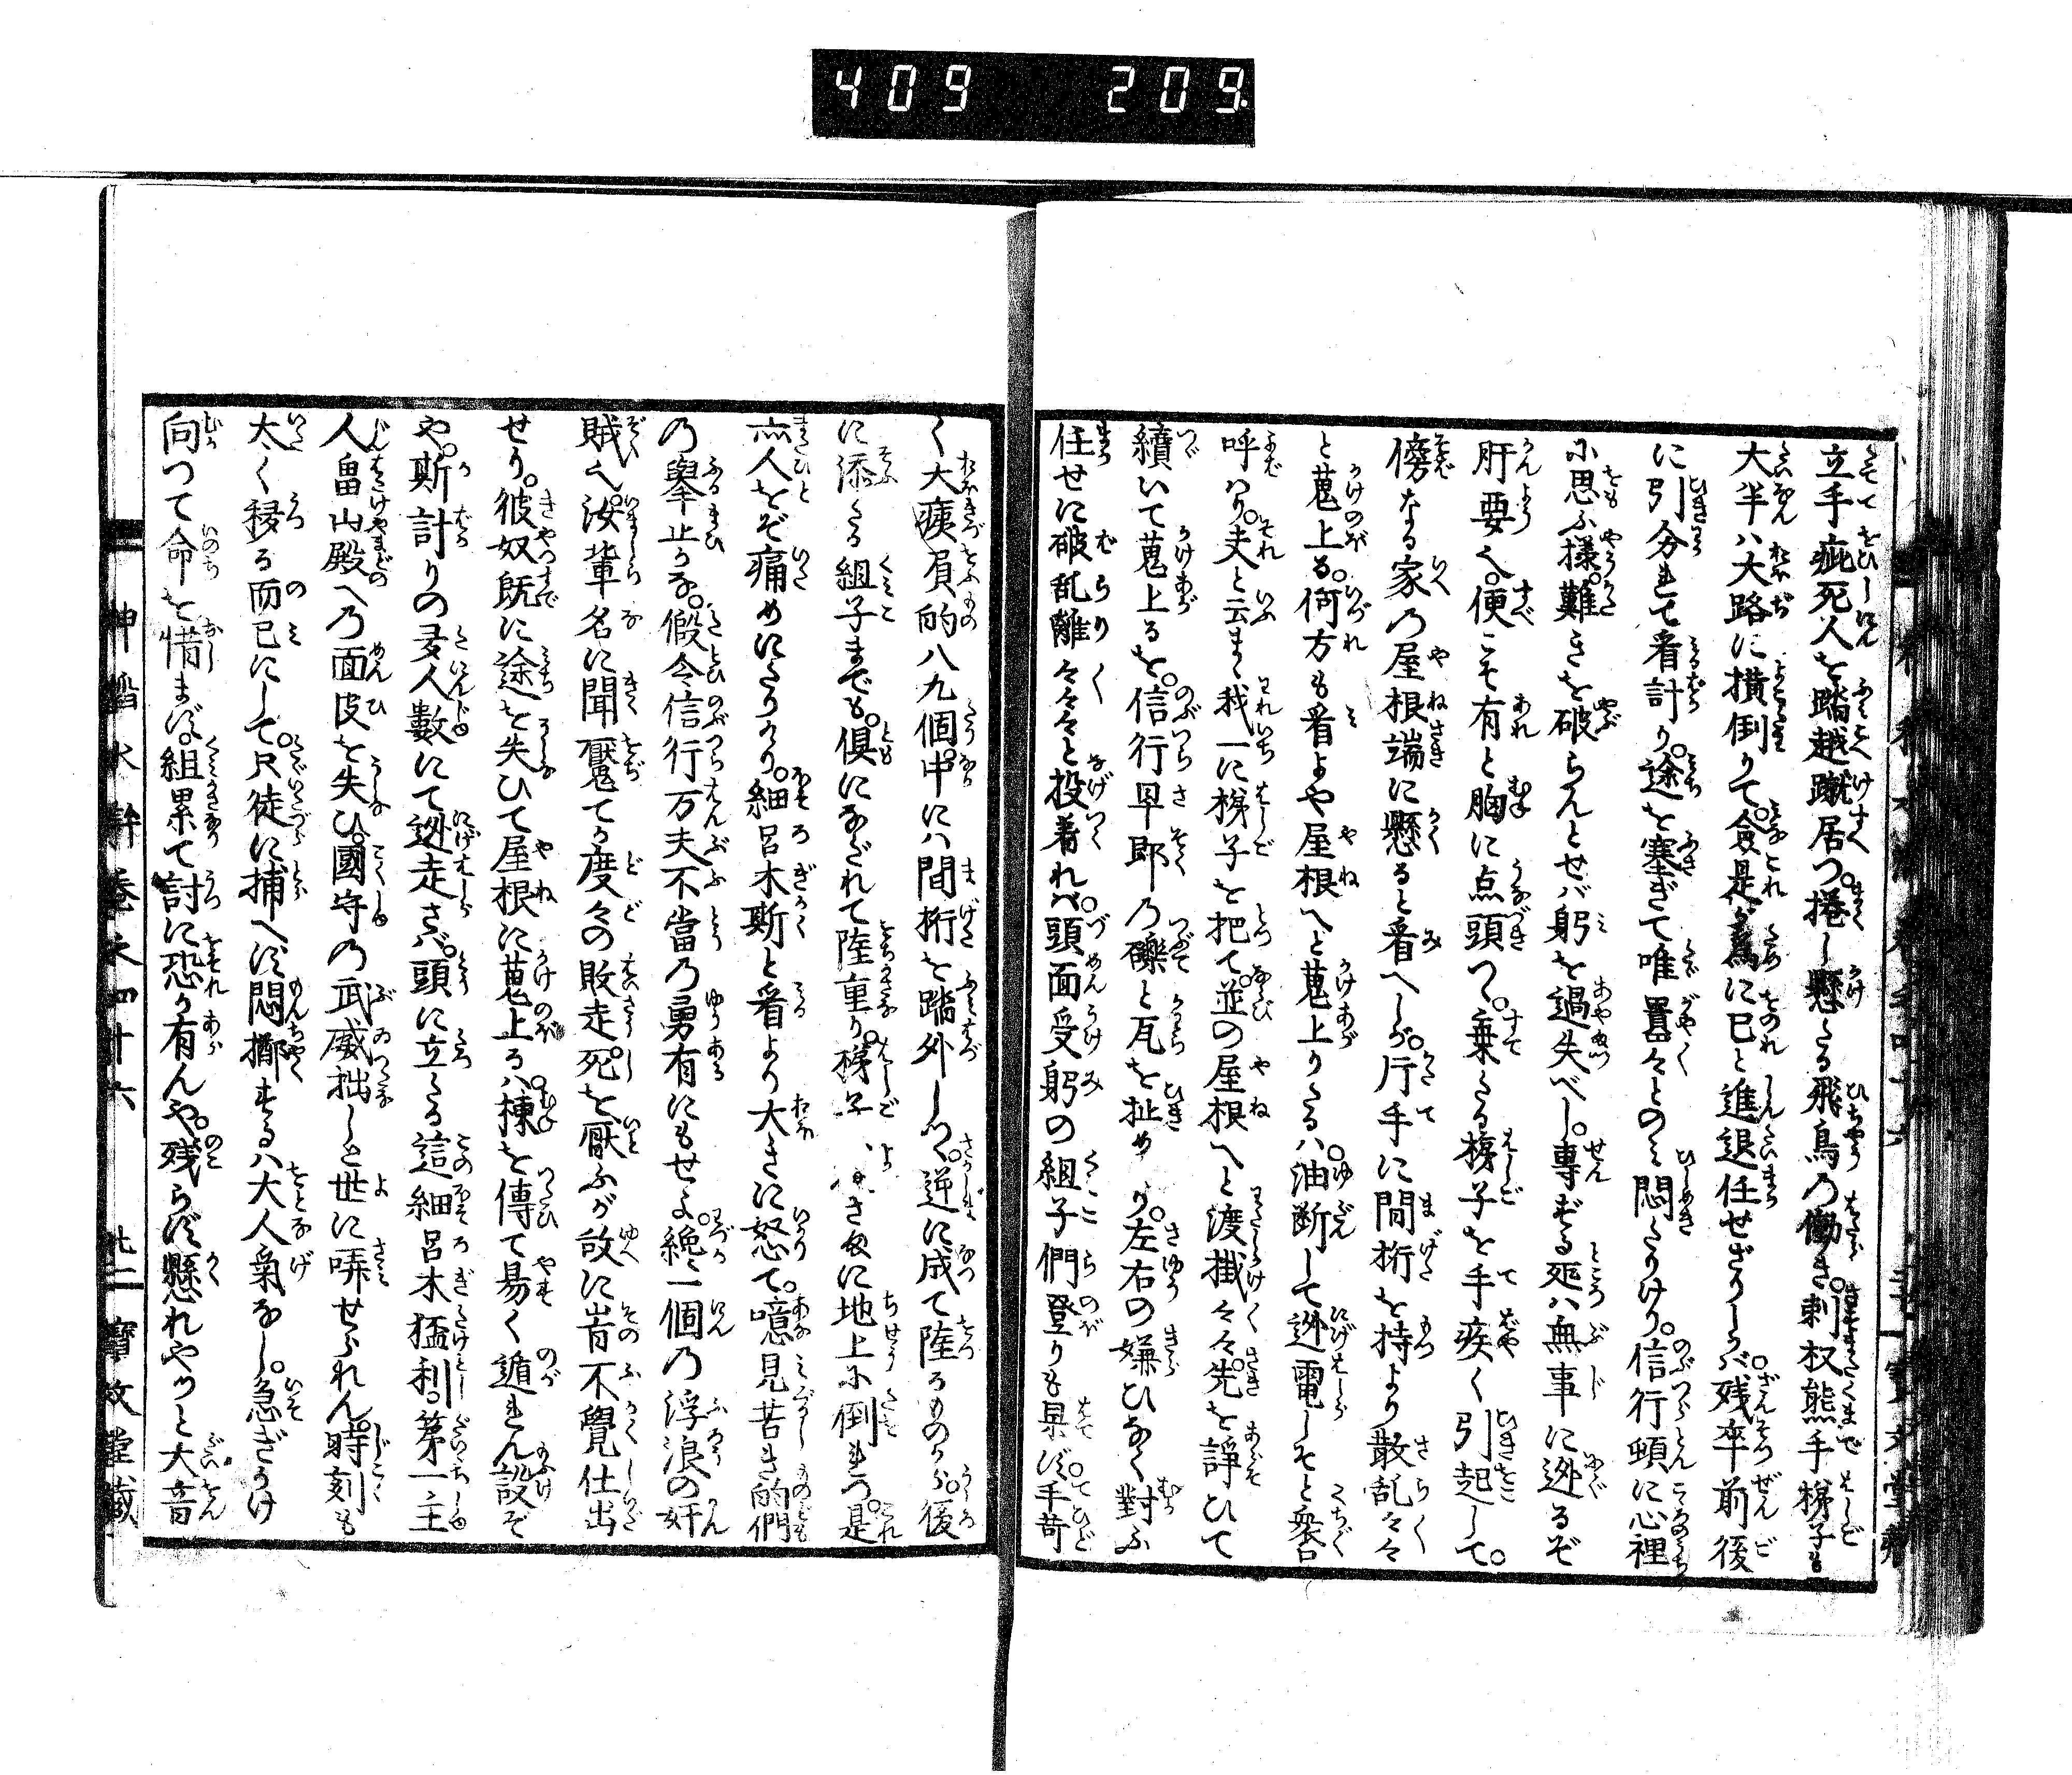 409 209
立手疵死人を踏越蹴居つ。捲し懸たる飛鳥乃働き。刺权熊手梯子も
大半ハ大路に横倒りて。僉是が為に己と進退任せざりしかバ。残卒前後
に引分れて看計り。途を塞ぎて唯囂々とのミ悶たりけり。信行頓に心裡
に思ふ様。難きを破らんとせバ躬を過失べし。専ずる処ハ無事に迯るぞ
肝要也。便こそ有と胸に点頭つ。棄たる梯子を手疾く引起して。
傍なる家乃屋根端に懸ると看へしが。片手に間桁を持より散乱々々
と蒐上る。何方も看よや屋根へと蒐上りたるハ。油断して迯電しそと衆口
呼ハり。夫と云まゝ我一に梯子を把て。並の屋根へと渡掛々々。先を諍ひて
續いて蒐上るを。信行早郎乃礫と瓦を扯めくり。左右の嫌ひなく對ふ
任せに破乱離々々々と投着れバ。頭面受躬の組子們登りも果ず。手苛
く大痍負的八九個。中にハ間桁を踏外しつ。逆に成て陸るものから。後
に添たる組子までも。倶になだれて陸重り。梯子さへに地上に倒れつ。是
亦人をぞ痛めにたりけり。細呂木斯と看より大きに怒て。噫見苦き的們
乃擧止かな。假令信行万夫不當乃勇有にもせよ。纔一個乃浮浪の奸
賊也。汝輩名に聞魘てか度々の敗走。死を厭ふが故に嵜不覺仕出
せり。彼奴既に途を失ひて屋根に蒐上るハ。棟を傳て易く遁れん設ぞ
や。斯計りの夛人數にて迯走さバ。頭に立たる這細呂木猛利。第一主
人畠山殿へ乃面皮を失ひ。國守乃武威拙しと世に哢せられん。時刻も
太く移る而已にして。只徒に捕へず悶擲するハ大人氣なし。急ぎかけ
向つて命を惜まバ。組累て討に恐か有んや。残らず懸れやつと大音
神稻水滸傳巻之四十六 廿二 寶文堂藏